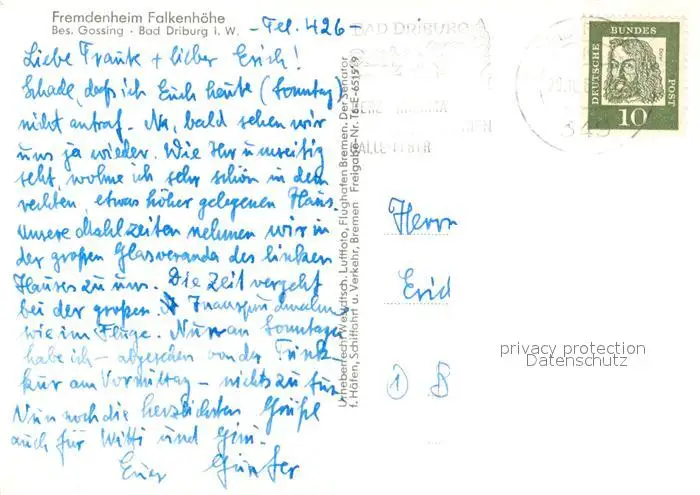 Fremdenheim Falkenhöhe
Bes. Gossing · Bad Driburg i. W. - Tel. 426 -
Liebe Frauke + lieber Erich!
Schade, daß ich Euch heute (Sonntag)
nicht antraf. Na, bald sehen wir
uns ja wieder. Wie Ihr umseitig
seht, wohne ich sehr schön in dem
rechten, etwas höher gelegenen Haus.
Unsere Mahlzeiten nehmen wir in
der großen Glasveranda des linken
Hauses zu uns. Die Zeit vergeht
bei der großen
wie im Fluge. Nur an Sonntagen
habe ich - abgesehen von der Trink-
kur am Vormittag - nichts zu tun.
Nun noch die herzlichsten Grüße
auch für Witti und
Euer Günter
Urheberrecht Westdtsch. Luftfoto, Flughafen Bremen. Der Senator
f. Häfen, Schiffahrt u. Verkehr, Bremen Freigabe-Nr. Te-E-6515/9
BAD DRIBURG
DEUTSCHE BUNDESPOST
10
Herrn
Erich
1 B
privacy protection
Datenschutz